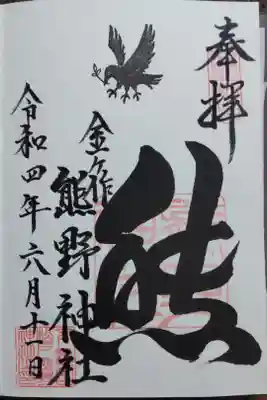 奉拝
熊
金ケ作
熊野神社
令和四年六月十一日